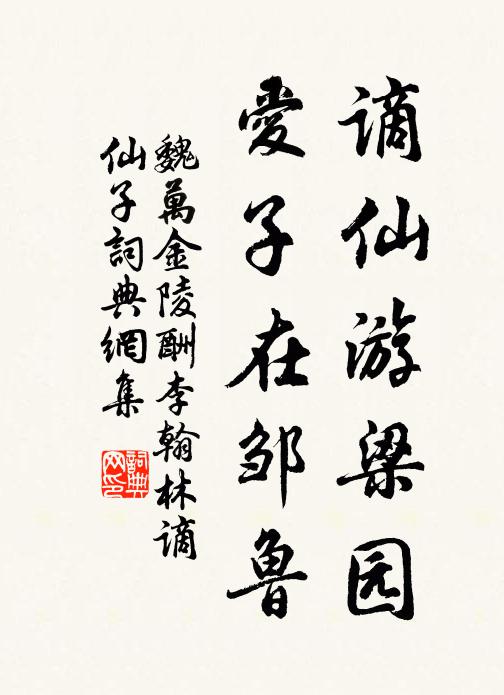 谪仙游梁园
愛子在邹魯
魏萬金陵酬李翰林谪
仙子詞典網集
詞典
网印